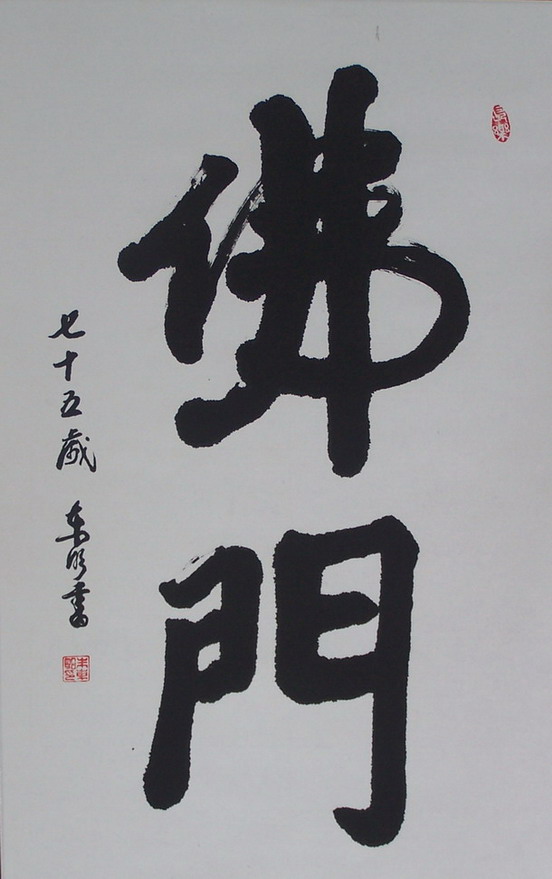 佛門
七十五歲 东明書